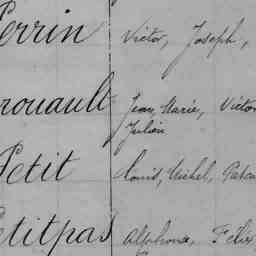 Perrin Victor, Joseph,
rouault Jean, Marie, Victor
Julien
Petit Louis, Michel,
etitpas Alphonse, Félix